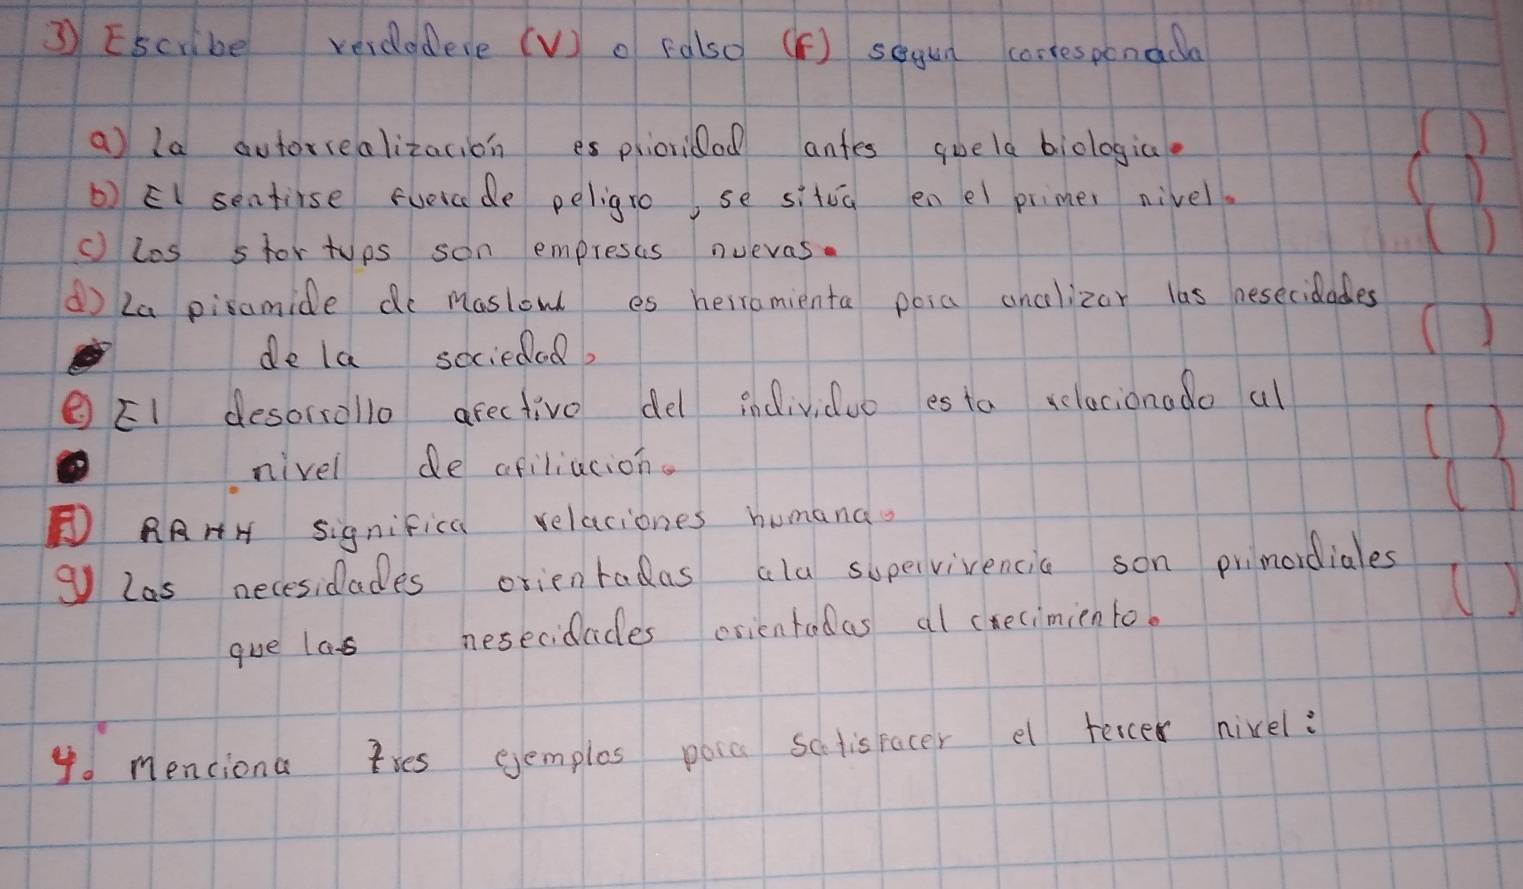 3) Escribe verdadere (V) o falso (F) segun correspenada
a) la autorrealización es prioridad antes quela biologica.
b) El sentirse fuerade peligro, se situa en el primer nivel.
c) los stor tups son empresas nuevas.
d) La piramide de Maslow es herramienta para analizar las nesecidades
de la sociedad.
e) El desarrollo afectivo del individuo esta relacionado al
nivel de afiliación.
F) RRHH significa relaciones humana.
g) las necesidades orientadas ala supervivencia son primordiales
que las nesecidades orientadas al crecimiento.
4. Menciona tres ejemplos para satisfacer el tercer nivel: